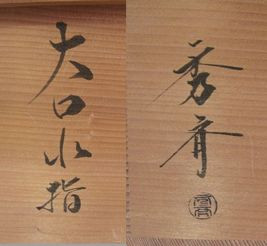 大口水指
秀斉